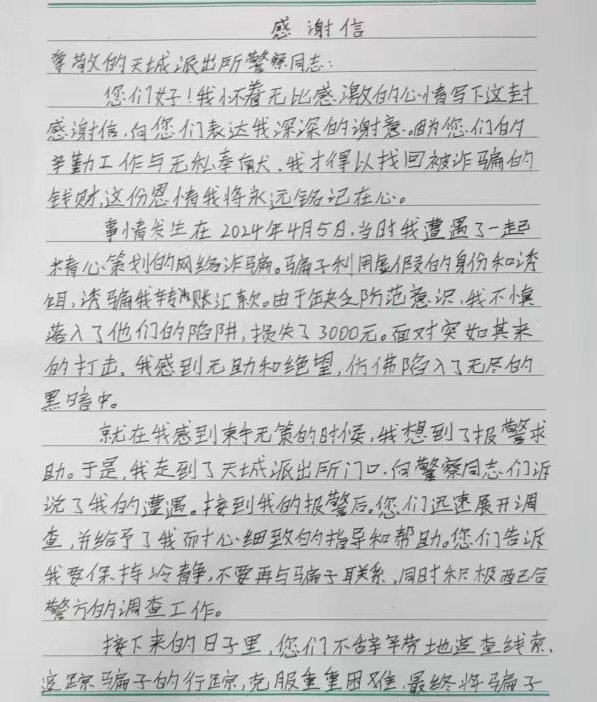 感谢信
尊敬的天城派出所警察同志:
您们好!我怀着无比感激的心情写下这封
感谢信,向您们表达我深深的谢意。因为您们的
辛勤工作与无私奉献,我才得以找回被诈骗的
钱财,这份恩情我将永远铭记在心。
事情发生在2024年4月5日,当时我遭遇了一起
精心策划的网络诈骗。骗子利用虚假的身份和诱
饵,诱骗我转账汇款。由于缺乏防范意识,我不慎
落入了他们的陷阱,损失了3000元。面对突如其来
的打击,我感到无助和绝望,仿佛陷入了无尽的
黑暗中。
就在我感到束手无策的时候,我想到了报警求
助。于是,我走到了天城派出所门口,向警察同志们诉
说了我的遭遇。接到我的报警后,您们迅速展开调
查,并给予了我耐心细致的指导和帮助。您们告诉
我要保持冷静,不要再与骗子联系,同时积极配合
警方的调查工作。
接下来的日子里,您们不辞辛劳地追查线索,
追踪骗子的行踪,克服重重困难,最终将骗子